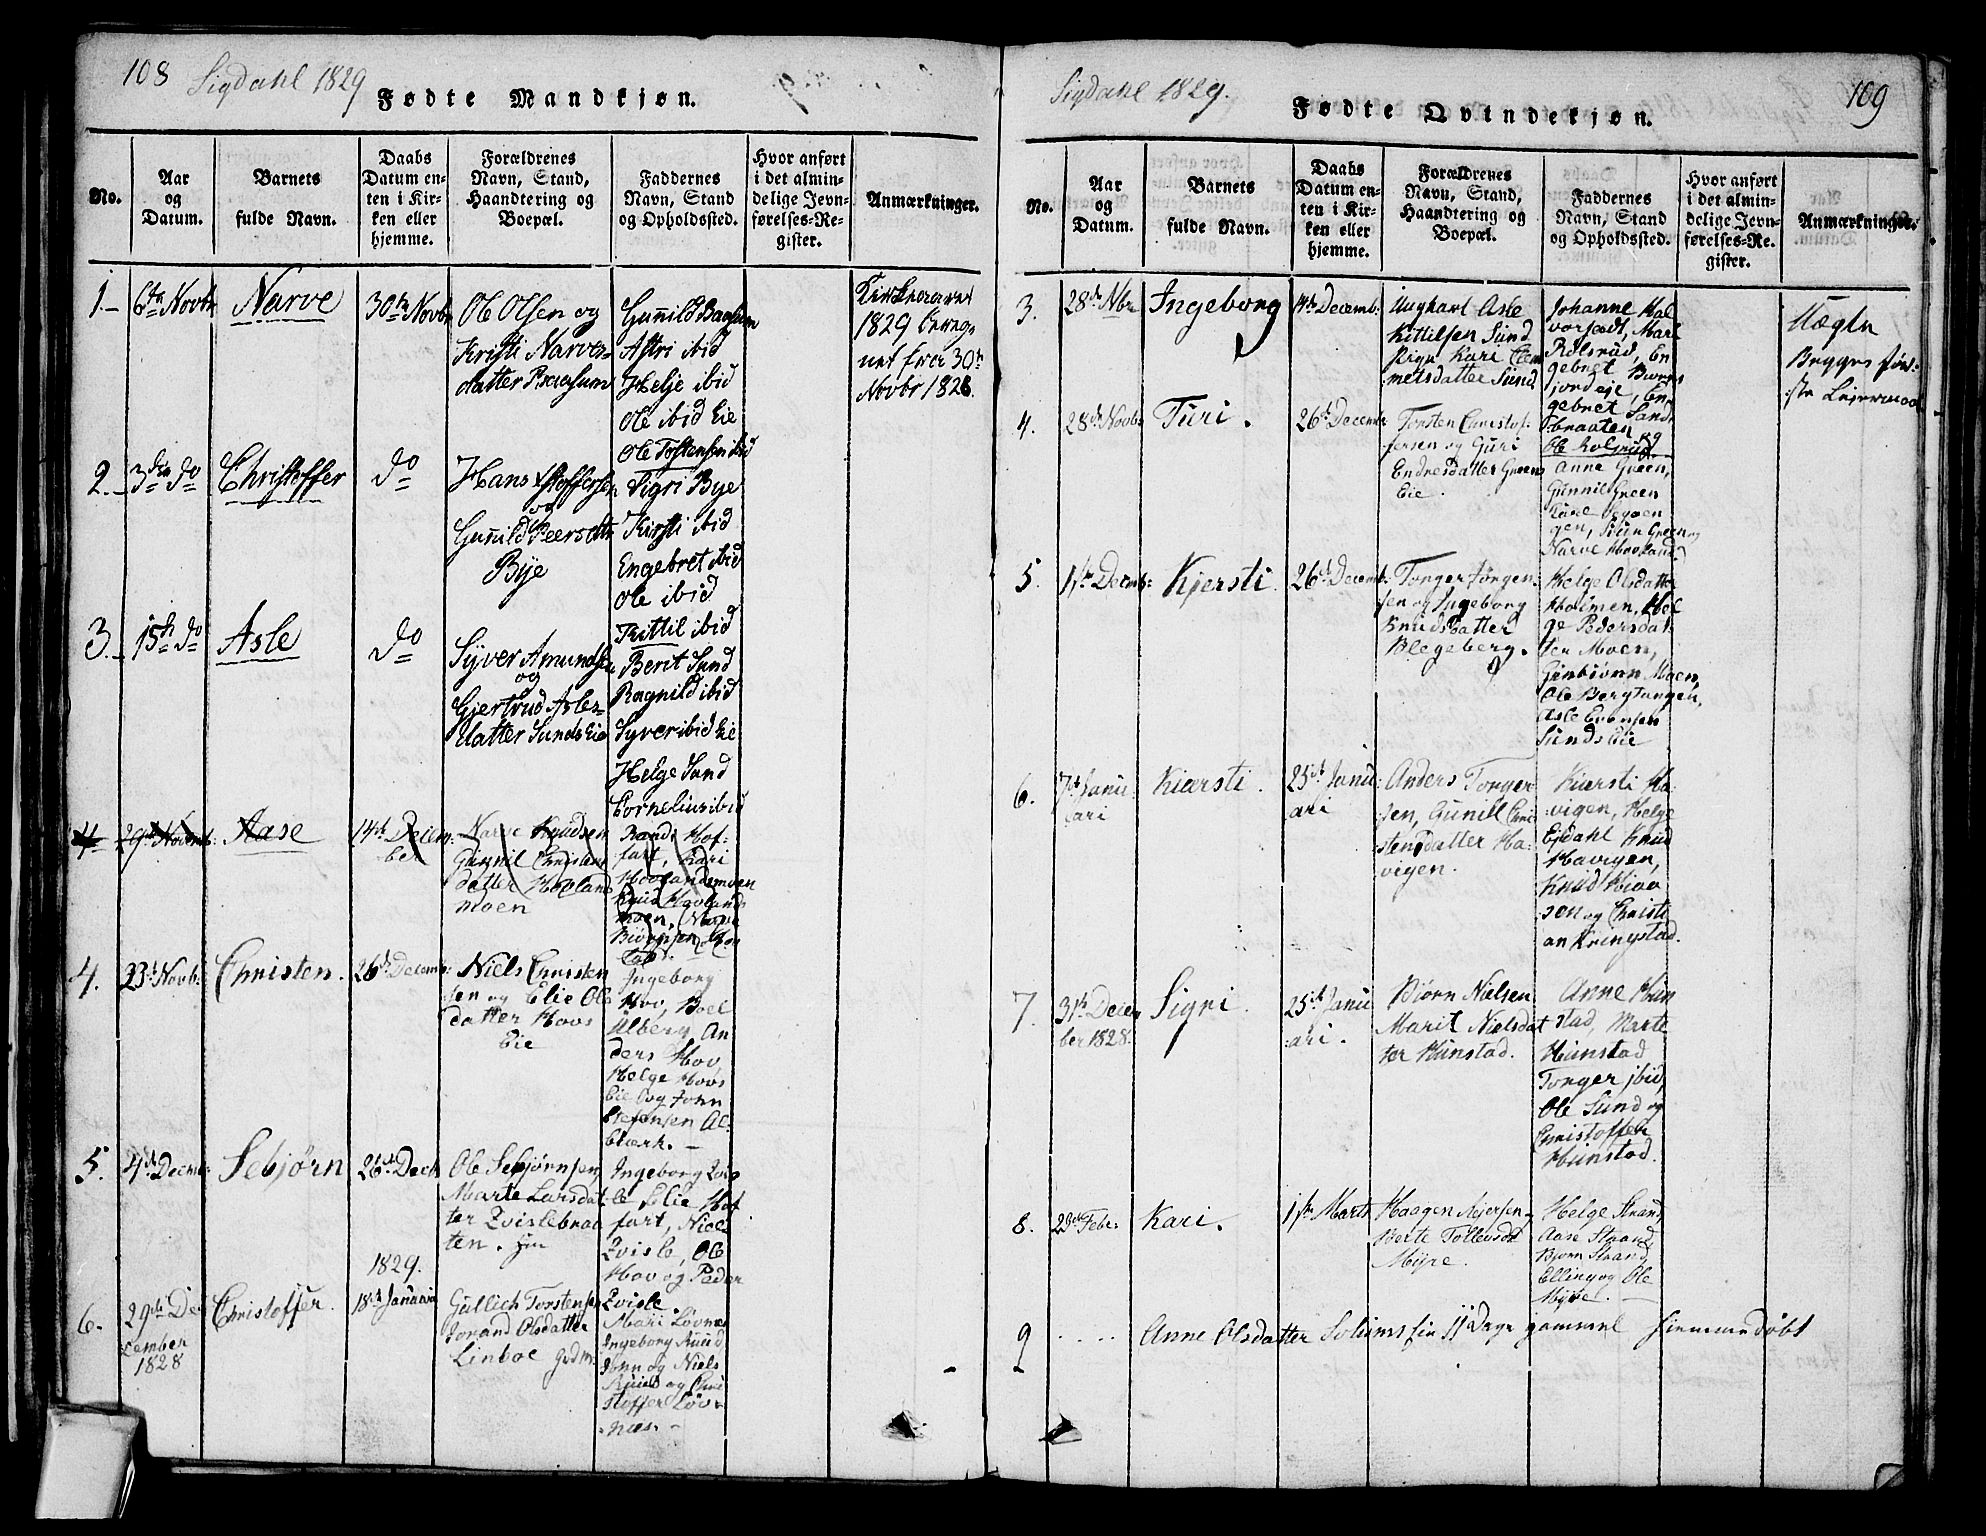 108 Sigdahl 1829
Fødte Mandkjøn.
No.
Aar
og
Datum.
Barnets
fulde Navn.
Daabs
Datum en-
ten i Kir-
ken eller
hjemme.
Forældrenes
Navn, Stand,
Haandtering og
Boepæl.
Faddernes
Navn, Stand
og Opholdssted.
Hvor anført
i det almin-
delige Jevn-
førelses-Re-
gister.
Anmærkninger.
1.
6te Novbr
Narve
30te Novbr
Ole Olsen og
Kristi Narves-
datter Praasum
Gunild
Astri ibid
Helje ibid
Ole ibid Eie
Ole Tostensen ibid
Kirkeaaret
1829
net fra 30te
Novbr 1828.
2.
3die do
Christoffer
do
Hans
og
Gunild Peersdtr
Bye
Sigri Bye
Kirsti ibid
Engebret ibid
Ole ibid
Kittil ibid
3.
15de do
Asle
do
Syver Amundsen
og
Gjertrud Asles-
datter Sunds Eie
Berit Sund
Ragnild ibid
Syver ibid Eie
Helge Sund
Cornelius ibid
4
29de Novemb:
Aase
14de Decem-
ber
Narve Knudsen
Gunnil
datter Hovland
moen
fart, Kari
Hovlandsmoen
Knud Hovland
moen,
4.
23de Novb:
Christen.
26de Decemb:
Niels Christen
sen og Elie Ols
datter Hovs
Eie
Ingeborg
Hov, Boel
Ulberg, An
ders Hov,
Helge Hovs
Eie og John
Al-
bierk.
5.
4de Decmb:
Sebjørn
26de Decb
Ole Sebjørnsen,
Marte Larsdat-
ter Zvislebraa
ten.
Ingeborg Zvis
le Elie Hof
fart, Niels
Zvisle, Ole
Hov og Peder
Zvisle.
1829.
6.
29de De
cember
1828
Christoffer.
18de Januari
Gullich Torstensen
Jorand Olsdatter
Linboe
Mari Lovnæs
Ingeborg Ruud
John og Niels
Ruud og Chri
stoffer Løv-
næs.
Sigdahl 1829.
109
Fødte Qvindekjøn.
No.
Aar
og
Datum.
Barnets
fulde Navn.
Daabs
Datum en-
ten i Kir-
ken eller
hjemme.
Forældrenes
Navn, Stand,
Haandtering og
Boepæl.
Faddernes
Navn, Stand
og Opholdssted.
Hvor anført
i det almin-
delige Jevn-
førelses-Re-
gister.
Anmærkninger.
3.
28de Nbr.
Ingeborg
14de Decemb:
Ungkarl Asle
Kittilsen Sund
Pige Kari Clem
metsdatter Sund
Johanne Hal
vorsødt, Mari
Rolsrud, En
gebret
jord eje, En
gebret Sand
braaten og
Ole Rolsrud
Uægte
Brygges før-
ste Leiermaal
4.
28de Novb:
Turi.
26de Decemb
Torsten Christof-
fersen og Guri
Endresdatter Greens
Eie.
Anne Green,
Gunnil Green
gen, Green og
Narve Hovland
5.
1ste Decmb:
Kjersti.
26de Decemb:
Torger Jørgen
sen og Ingeborg
Knudsdatter
Blegeberg.
Helge Olsdatter
Holmen, Hel
ge Pedersdat-
ter Moen,
Moen,
Ole Bergtangen,
Asle Evensen
Sunds Eie
6.
7de Janu
ari
Kiersti.
25de Janu
ari
Anders Torger
sen, Gunill Chri
stensdatter Ha-
vigen.
Kiersti Ha-
vigen, Helge
Eidahl Knud
Havigen,
Knud
sen og Christi
an Kringstad.
7.
31te Decem
ber 1828.
Sigri.
25de Janu
ari.
Bjørn Nielsen
Marit Nielsdat
ter Hunstad.
Anne Hun
stad, Marte
Hunstad
Torger ibid,
Ole Sund og
Christoffer
Hunstad.
8.
23de Febr:
Kari.
1ste Marts
Haagen
Berte Tollevsd
Myre.
Helge Strand,
Aase Strand,
Biørn Strand
Elling og Ole
Myre.
9
Anne Olsdatter Solums Eie 11 Dage gammel hjemmedøbt